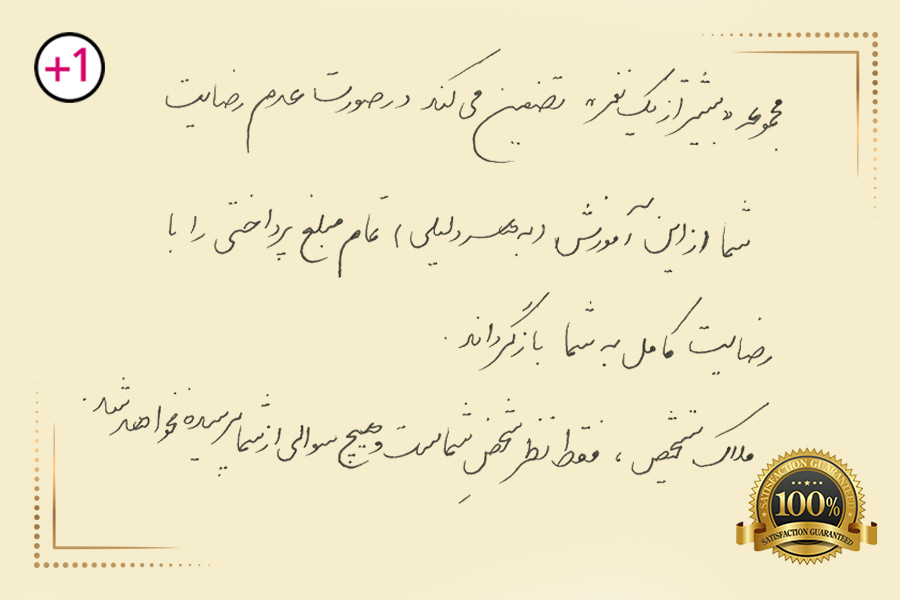 +1
مجموعه «بیشتر از یک نفر» تضمین می کند در صورت عدم رضایت
شما از این آموزش (به هر دلیلی) تمام مبلغ پرداختی را با
رضایت کامل به شما بازگرداند.
ملاک تشخیص، فقط نظر شخصِ شماست و هیچ سوالی از شما پرسیده نخواهد شد.
SATISFACTION GUARANTEED
100%
SATISFACTION GUARANTEED